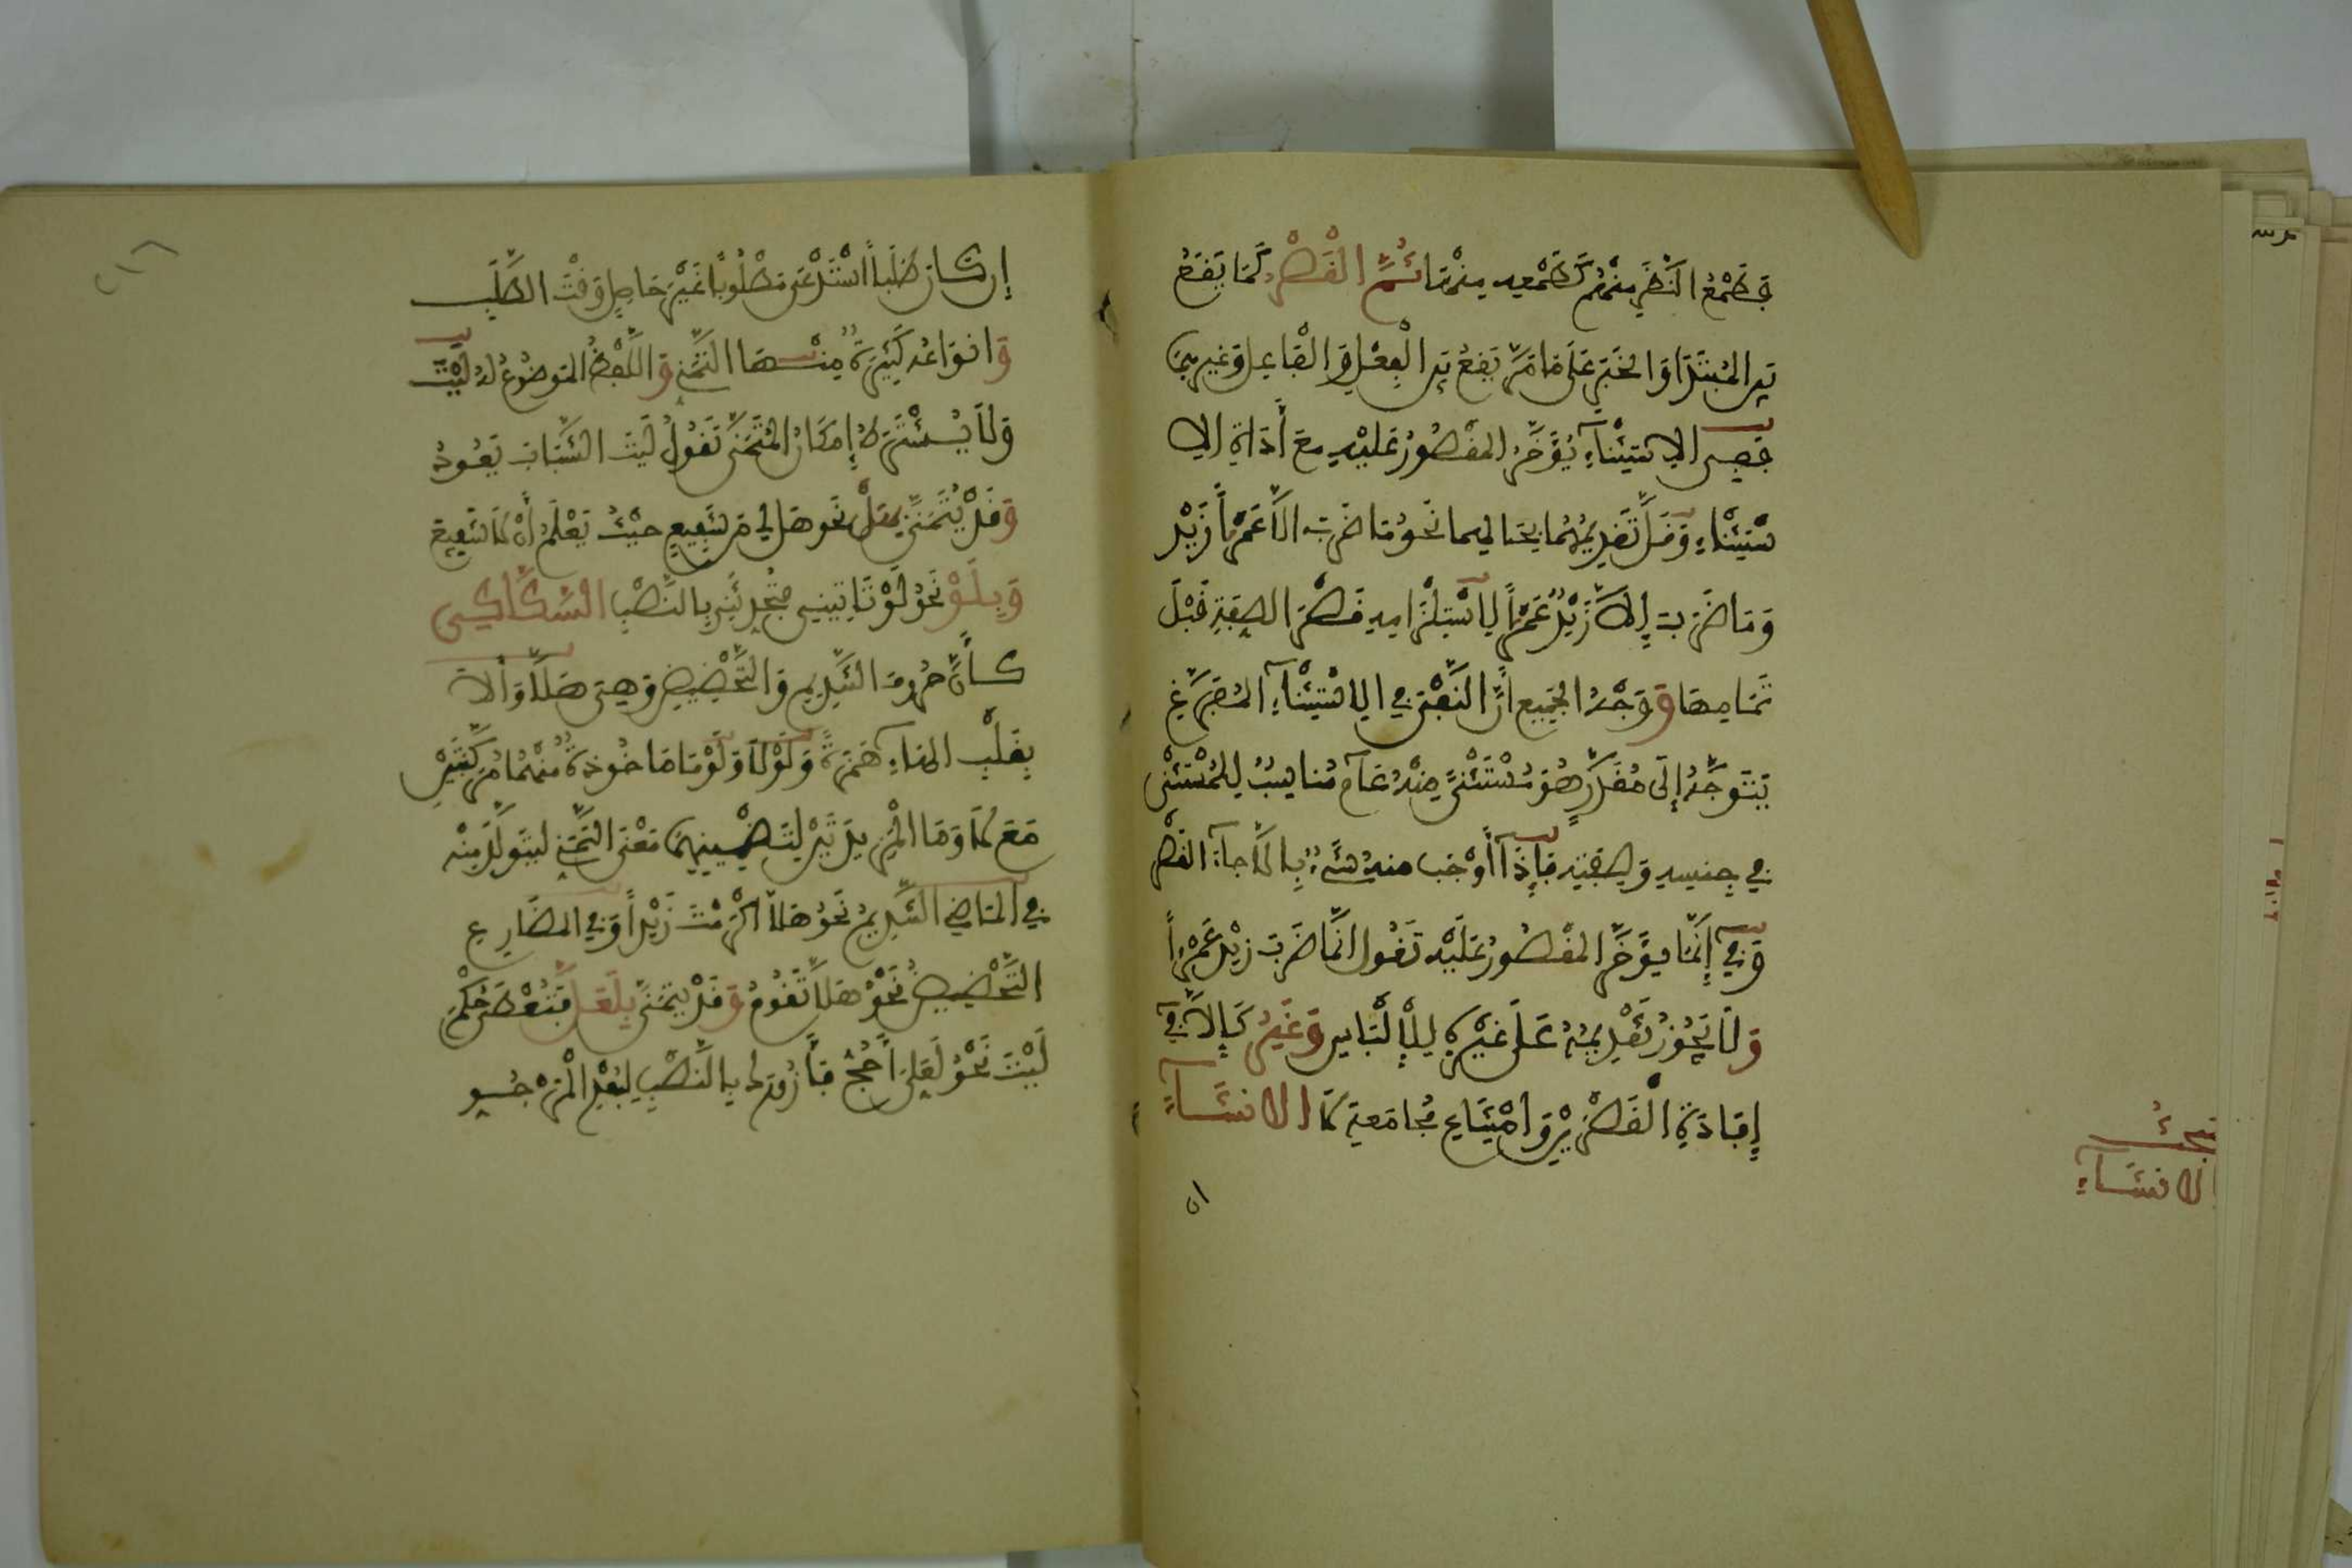 فطمع النظر منهم كطمعه منها ثم القصر كما يقع
بين المبتدإ والخبر على ما مر يقع بين الفعل والفاعل وغيرهما
ففي الاستثناء يؤخر المقصور عليه مع أداة الا
ستثناء وقل تقديمهما بحالهما نحو ما ضرب الا عمرا زيد
وما ضرب إلا زيد عمرا لاستلزامه قصر الصفة قبل
تمامها ووجه الجميع ان النفي في الاستثناء المفرغ
يتوجه إلى مقدر هو مستثنى منه عام مناسب للمستثنى
في جنسه وصفته فإذا أوجب منه شيء بالا جاء القصر
وفي إنما يؤخر المقصور عليه تقول انما ضرب زيد عمرا
ولا يجوز تقديمه على غيره للالباس وغير كإلا في
إفادة القصرين وامتناع مجامعة لا الانشاء
مبحث
الانشاء
إن كان طلبا استدعى مطلوبا غير حاصل وقت الطلب
وانواعه كثيرة منها التمني واللفظ الموضوع له ليت
ولا يشترط إمكان المتمنى تقول ليت الشباب يعود
وقد يتمنى بهل نحو هل لي من شفيع حيث تعلم أن لا شفيع
وبلو نحو لو تاتيني فتحدثني بالنصب السكاكي
كأن حروف التنديم والتحضيض وهي هلا وألا
بقلب الهاء همزة ولولا ولوما ماخوذة منهما مركبتين
مع لا وما المزيدتين لتضمينهما معنى التمني ليتولد منه
في الماضي التنديم نحو هلا اكرمت زيدا وفي المضارع
التحضيض نحو هلا تقوم وقد يتمنى بلعل فتعطى حكم
ليت نحو لعلي أحج فأزورك بالنصب لبعد المرجو